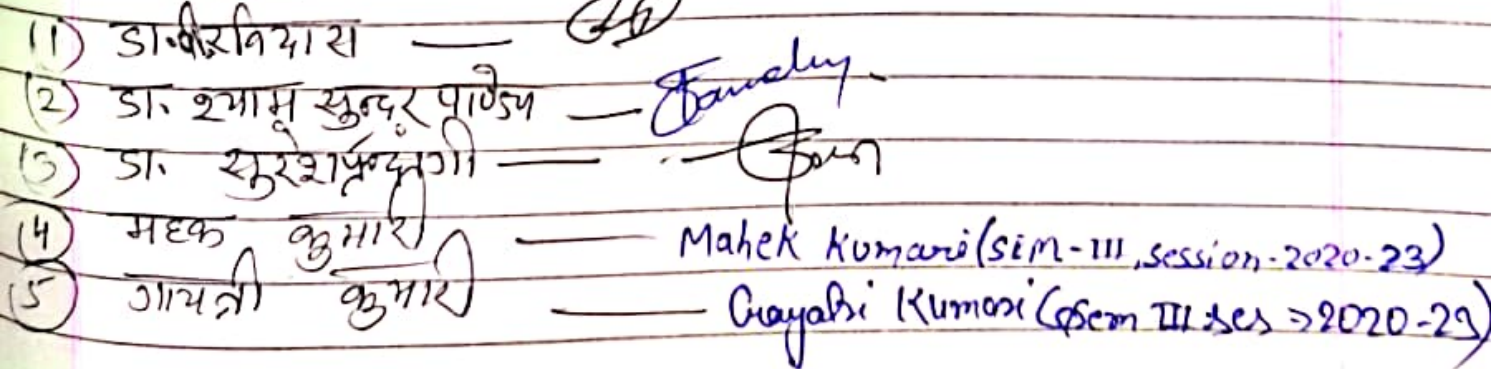 (1) डा. वीरविदास —
(2) डा. श्याम सुन्दर पाण्डेय — Pandey.
(3) डा. —
(4) महक कुमारी — Mahek Kumari (sem-III, session-2020-23)
(5) गायत्री कुमारी — Gayatri Kumari (Sem III ses → 2020-23)